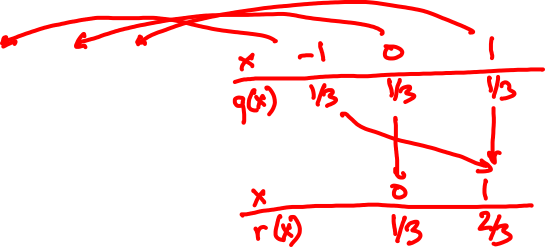 x -1 0 1
q(x) 1/3 1/3 1/3
x 0 1
r(x) 1/3 2/3